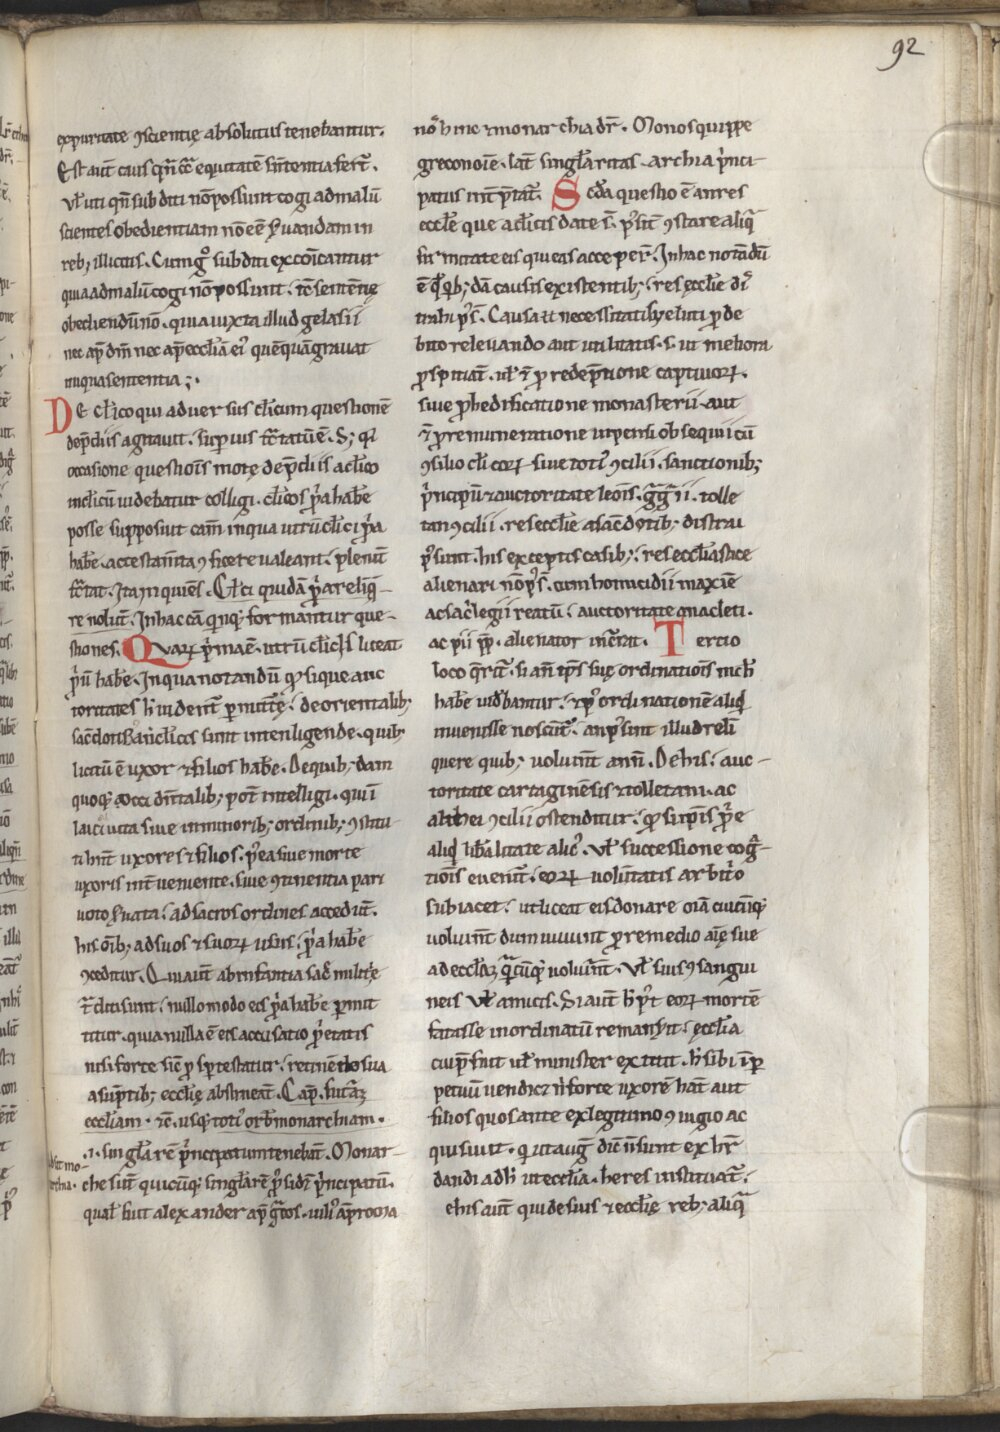 92
ex puritate ꝯscientię absolutus tenebantur.
Est aut̄ caus qn̄ cͣ equitatē sn̄tentia fert᷑.
Vł uti qn̄ subditi nō possunt cogi ad malū
scientes obedientiam nō eē seruandam in
reb; illicitis. Cum gͦ subditi excōicantur
quia ad malū cogi nō possunt. tc̄ sentencię
obediendū nō. quia iuxta illud gelasii
nec ap̄ dm̄ nec ap̄ ecclīā ei᷒ quēquā grauat
iniqua sententia;.
DE clīco qui aduersus clīcum questionē
de p̄diis agitauit. superius tͣctatū ē. S; qͥ
occasione questiōis motę de p̄diis a clīco
in clīcū uidebatur colligi. clīcos p̄ͥa hab̄e
posse supposuit cām in qua utrū clīci p̄ͥa
hab̄e. ac testam̄ta ꝯficere ualeant. plenū
tͣctat. Ita inquiēs. Clīci quidā p̄ͥa relinq̄-
re nolūt. In hac cā qͥnqꝫ formantur que-
stiones. Quaꝝ p̄ͥma ē. utrū clīcis liceat
p̄ͥū hab̄e. In qua notandū qͦ si que auc
toritates h̄ uident᷑ p̄mittē. de orientalib;
sac̄dotib; an clīcis sunt intenligende. quib;
licitū ē uxor ⁊ filios hab̄e. De quib;dam
quoqꝫ occidn̄talib; pōt intelligi. qui ī
laici uita siue in minorib; ordinib; ꝯstitu-
ti hn̄t uxores ⁊ filios. p̄ea siue morte
uxoris int̄ueniente. siue ꝯtinentia pari
uoto seruata. ad sacros ordines accedūt.
his oīb; ad suos ⁊ suoꝝ usus. p̄ͥa hab̄e
ꝯceditur. Qui aut̄ ab infantia sac̄ militię
t̄diti sunt. nullo modo eis p̄ͥa hab̄e p̄mit
titur. quia nulla ē eis accusatio p̄ͥetatis
nisi forte sic̄ p̄sp̄ testatur. retinēdo sua
a sūptib; ecclīę abstineāt. Cap̄. futurā
ecclīam. ⁊c̄. usqꝫ toti᷒ orbis monarchiam.
.i. singlārē p̄ͥncipatum tenebāt. Monar-
che sūt quicūqꝫ singlārē p̄sidēt p̄ͥncipatū.
qual̄ fuit alexander ap̄ gͣcos. iuli᷒ ap̄ romā
nō hinc ⁊ monarchia dr̄. Monos quippe
greco noīe. lat̄ singlāritas. archia p̄ͥnci-
patus int̄p̄tat᷑. Scd̄a questio ē an res
ecclīe que a clīcis date s̄. p̄sint ꝯstare aliqͣ
firmitate eis qui eas acceper̄. In hac notādū
ē qͦ qͥb;dā causis existentib; res ecclīe di
trahi p̄s̄. Causa .tt. necessitatis ueluti p̄ de
bito releuando aut utilitatis. s. ut meliora
p̄spiciat̄. uł ē p̄ redēptione captiuoꝝ.
siue p̄ hedificatione monasterii. aut
ē p̄ remuneratione inpensi obsequii cū
ꝯsilio clīcoꝝ siue toti᷒ ꝯcilii. sanctionib;
p̄ͥncipū ⁊ auctoritate leōis. gͣgͣii. tolle
tan ꝯcilii. res ecclīe a sac̄dotib; distrai
p̄sunt. his exceptis casib;. res ecclīastice
alienari nō p̄s̄. cum homicidii maxiē
ac sac̄legii reatū. auctoritate anacleti.
ac pii pp̄. alienator incurrat. Tertio
loco qͣrit᷑. si an̄ tp̄s suę ordinatiōis nich̄
hab̄e uidebantur. ⁊ p̄ ordinationē aliqͥd
inuenisse noscunt᷑. an p̄sint illud relī
quere quib; uoluer̄int an̄n. De his. auc-
toritate cartaginēsis ⁊ tolletani. ac
altheī ꝯcilii ostenditur. qͦ si ip̄is p̄ͥe
aliqͥd liberalitate alic᷒. uł successione cogͣ-
tiōis euenit᷑. eoꝝ uolūtatis arbitͥo
subiacet. ut liceat eis donare oīa cuicūqꝫ
uoluer̄t dum uiuunt p̄ remedio aīę sue
ad ecclīaꝫ qͣcūqꝫ uoluer̄int. Vł suis ꝯsangui
neis uł amicis. Si aut̄ h̄ p̄t̄ eoꝝ mortē
fatasse inordinatū remanserit. ecclīa
cui p̄fuit uł minister extitit. h̄ sibi īp̄
petuū uendicꝫ n̄ forte uxorē hāt aut
filios quos ante ex legitimo ꝯiugio ac
quisiuit. Qͥ ut aug᷑ dic̄ n̄ sunt ex hr̄
dandi ad h̄ ut ecclīa. heres instituat᷑.
ehis aut̄ qui de suis ⁊ ecclīę reb; aliqͣ